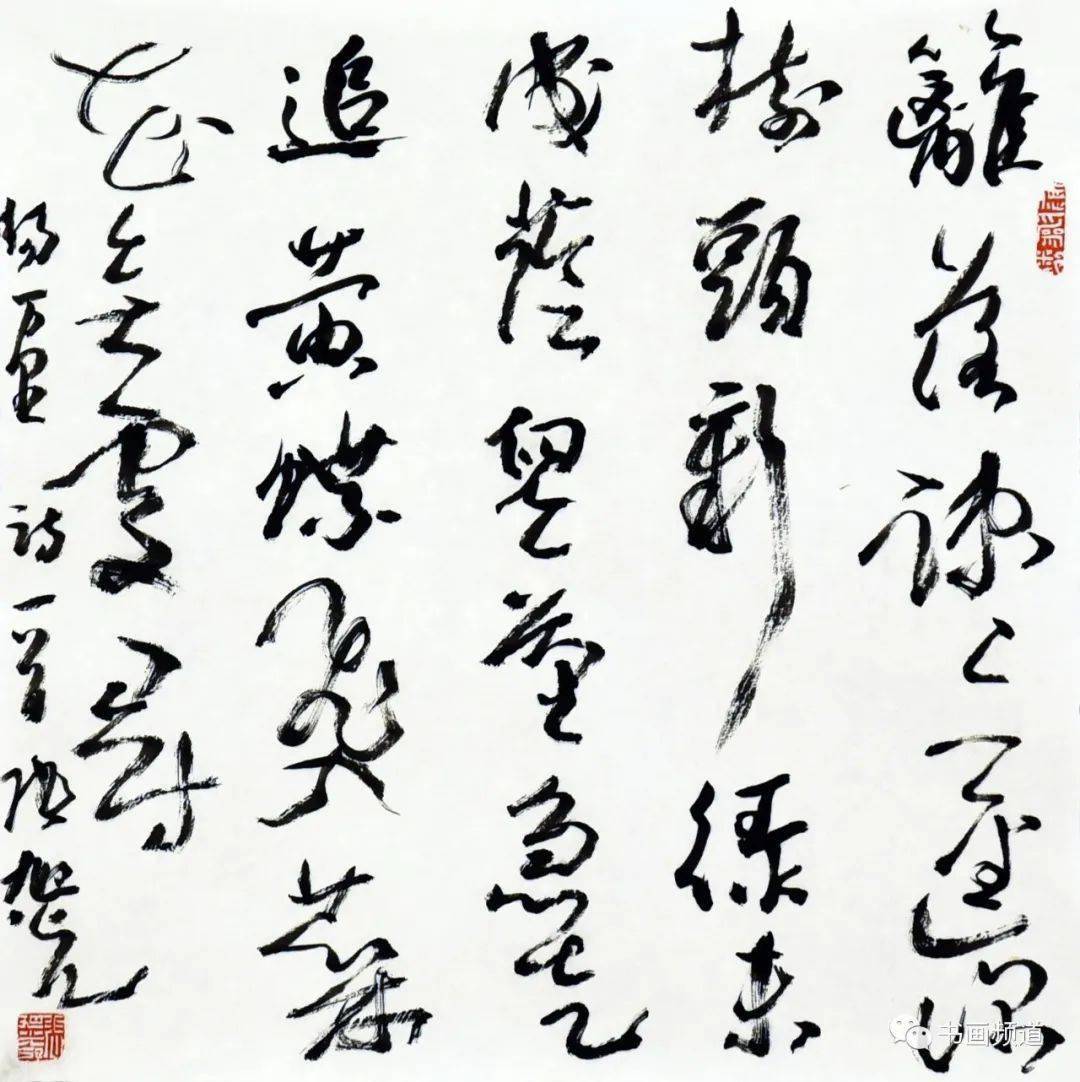 籬落疎々一徑深
樹頭新綠未
成蔭兒童急走
追黃蝶飛入菜
花無處尋
楊万里詩一首張旭光
书画频道